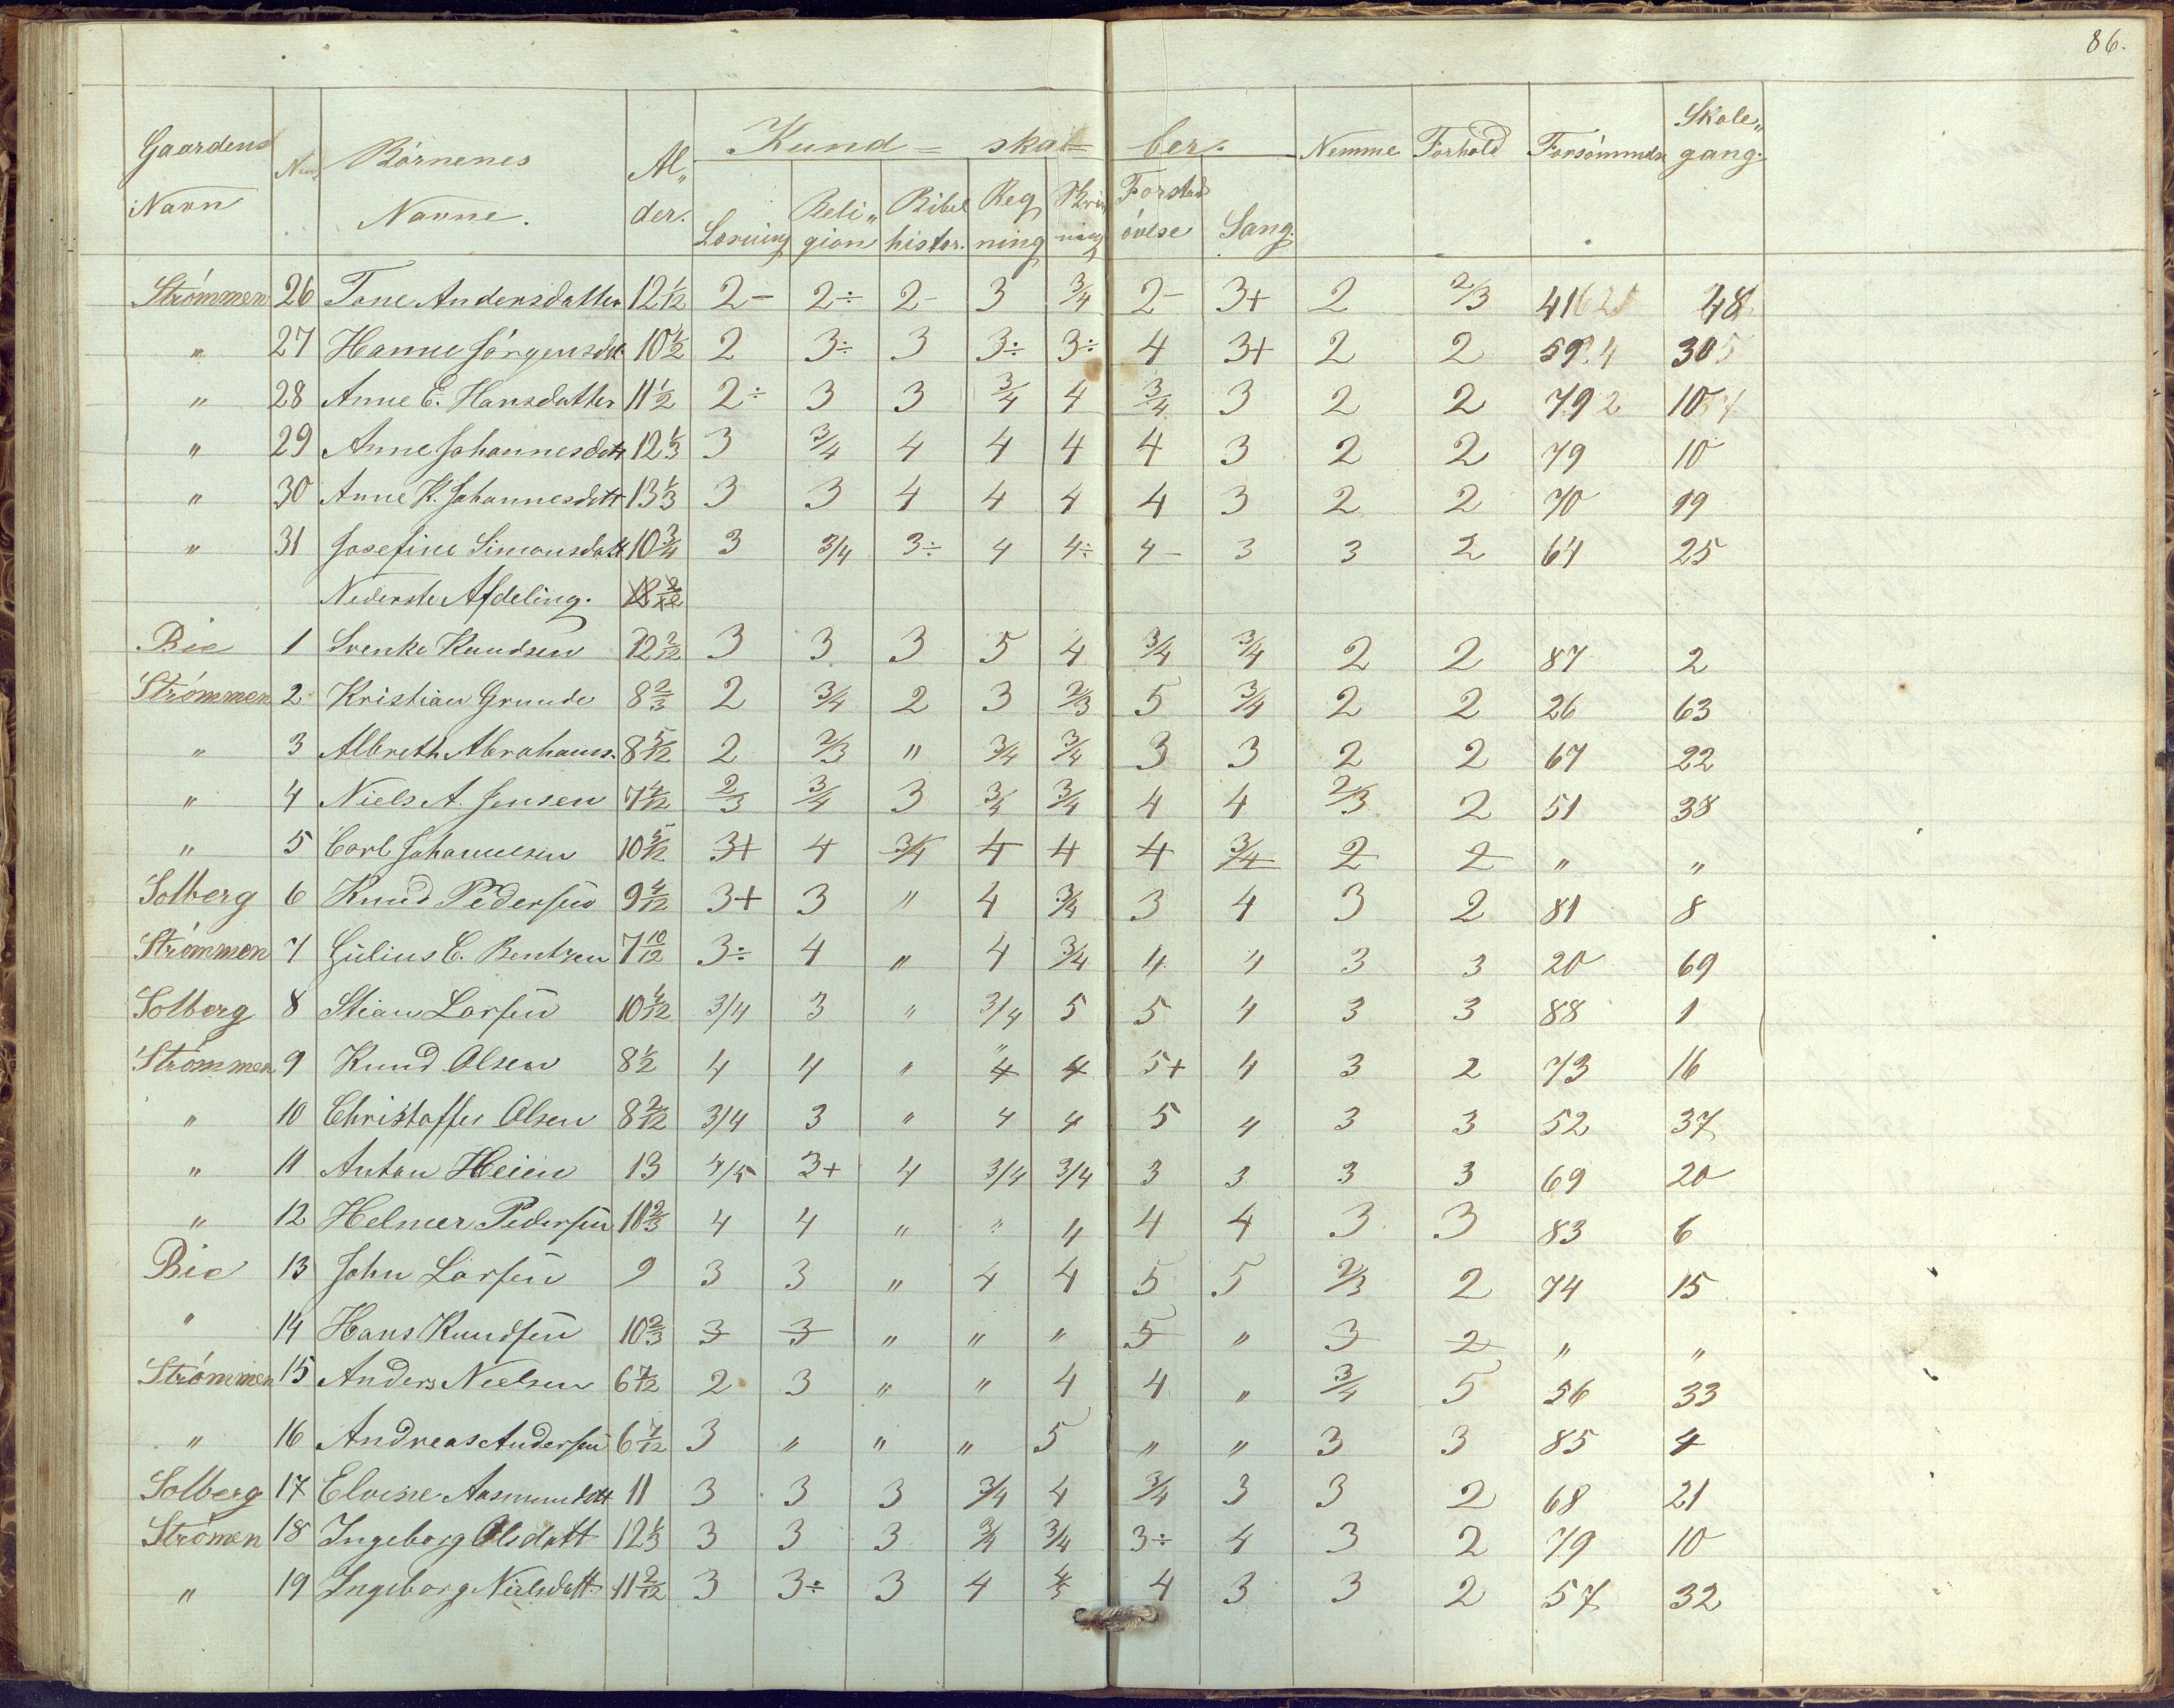 86.
Gaardens Navn | Num | Börnenes Navne. | Al„ der. | Kund = skab = ber. | Nemme | Forhold | Forsömmelse | Skole„ gang.
Læsning | Reli„ gion | Bibel histor. | Reg ning | Skriv ning | Forstads övelse | Sang.
Strömmen 26 Tone Andersdatter 12 1/12 2- 2÷ 2- 3 3/4 2- 3+ 2 2/3 41 48
" 27 Hanne Jörgensdtt 10 1/2 2 3÷ 3 3÷ 3÷ 4 3+ 2 2 59 30
" 28 Anne E. Hansdatter 11 1/2 2÷ 3 3 3/4 4 3/4 3 2 2 79 10
" 29 Anne Johannesdtt 12 1/3 3 3/4 4 4 4 4 3 2 2 79 10
" 30 Anne K. Johannesdtt 13 1/3 3 3 4 4 4 4 3 2 2 70 19
" 31 Josefine Simonsdatt 10 3/4 3 3/4 3÷ 4 4÷ 4- 3 3 2 64 25
Nederste Afdeling.
Bie 1 Svenke Knudsen 12 2/12 3 3 3 5 4 3/4 3/4 2 2 87 2
Strömmen 2 Kristian Grunde 8 2/3 2 3/4 2 3 2/3 5 3/4 2 2 26 63
" 3 Albreth Abrahams. 8 5/12 2 2/3 " 3/4 3/4 3 3 2 2 67 22
" 4 Niels A. Jensen 7 4/12 2/3 3/4 3 3/4 3/4 4 4 2/3 2 51 38
" 5 Carl Johannesen 10 5/12 3+ 4 3/4 4 4 4 3/4 2 2 " "
Solberg 6 Knud Pedersen 9 4/12 3+ 3 " 4 3/4 3 4 3 2 81 8
Strömmen 7 Gülius C. Bentzen 7 10/12 3÷ 4 " 4 3/4 4 4 3 3 20 69
Solberg 8 Stian Larsen 10 4/12 3/4 3 " 3/4 5 5 4 3 3 88 1
Strömmen 9 Knud Olsen 8 1/2 4 4 " 4 4 5+ 4 3 2 73 16
" 10 Christoffer Olsen 8 2/12 3/4 3 " 4 4 5 4 3 3 52 37
" 11 Anton Heien 13 4/5 3+ 4 3/4 3/4 3 3 3 3 69 20
" 12 Helmer Pedersen 10 2/3 4 4 " " " 4 4 3 3 83 6
Bie 13 John Larsen 9 3 3 " 4 4 5 5 2/3 2 74 15
" 14 Hans Knudsen 10 2/3 3 3 " " " 5 " 3 2 " "
Strömmen 15 Anders Nielsen 6 7/12 2 3 " " 4 4 " 3/4 5 56 33
" 16 Andreas Andersen 6 7/12 3 " " " 5 " " 3 3 85 4
Solberg 17 Elvine Aasmundtt 11 3 3 3 3/4 4 3/4 3 3 2 68 21
Strömen 18 Ingeborg Olsdatt 12 1/3 3 3 3 3/4 3/4 3÷ 4 3 2 79 10
" 19 Ingeborg Nielsdatt. 11 2/12 3 3÷ 3 4 4/3 4 3 3 2 57 32